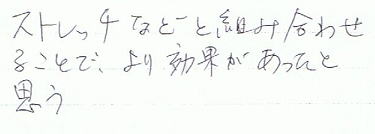 ストレッチなどと組み合わせ
ることで、より効果があったと
思う